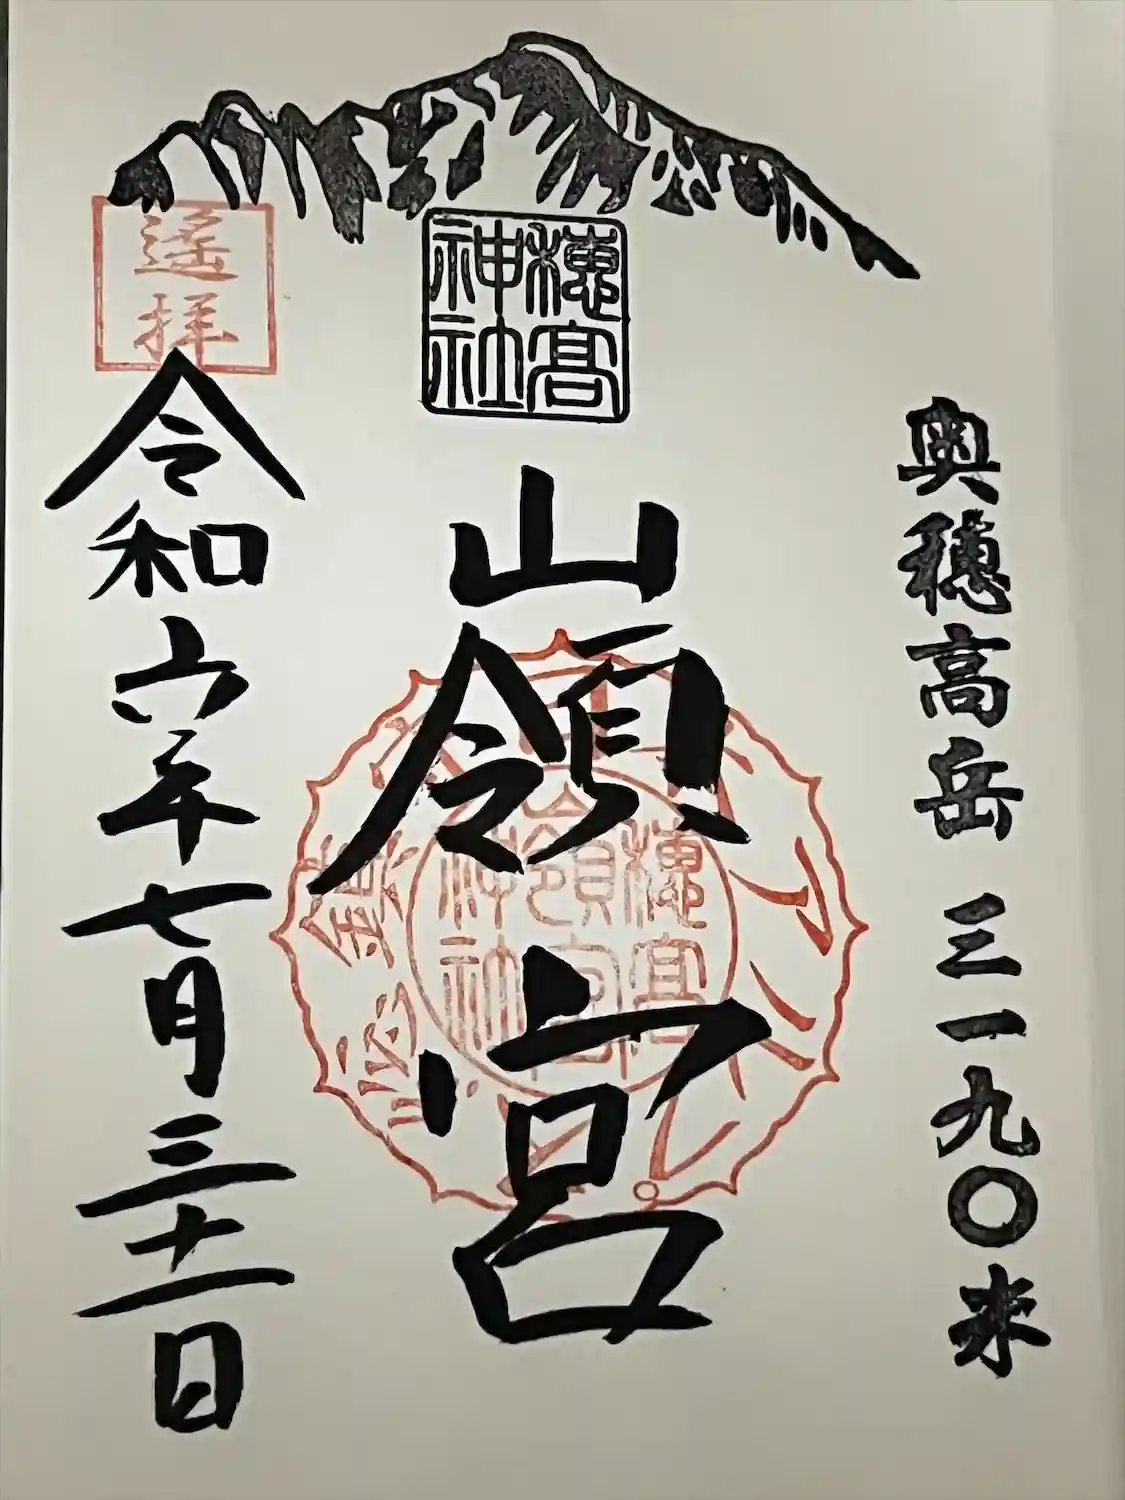 奥穂高岳 三一九〇米
穂高
神社
嶺宮
穂高
嶺宮
神社
遙拝
令和六年七月三十一日